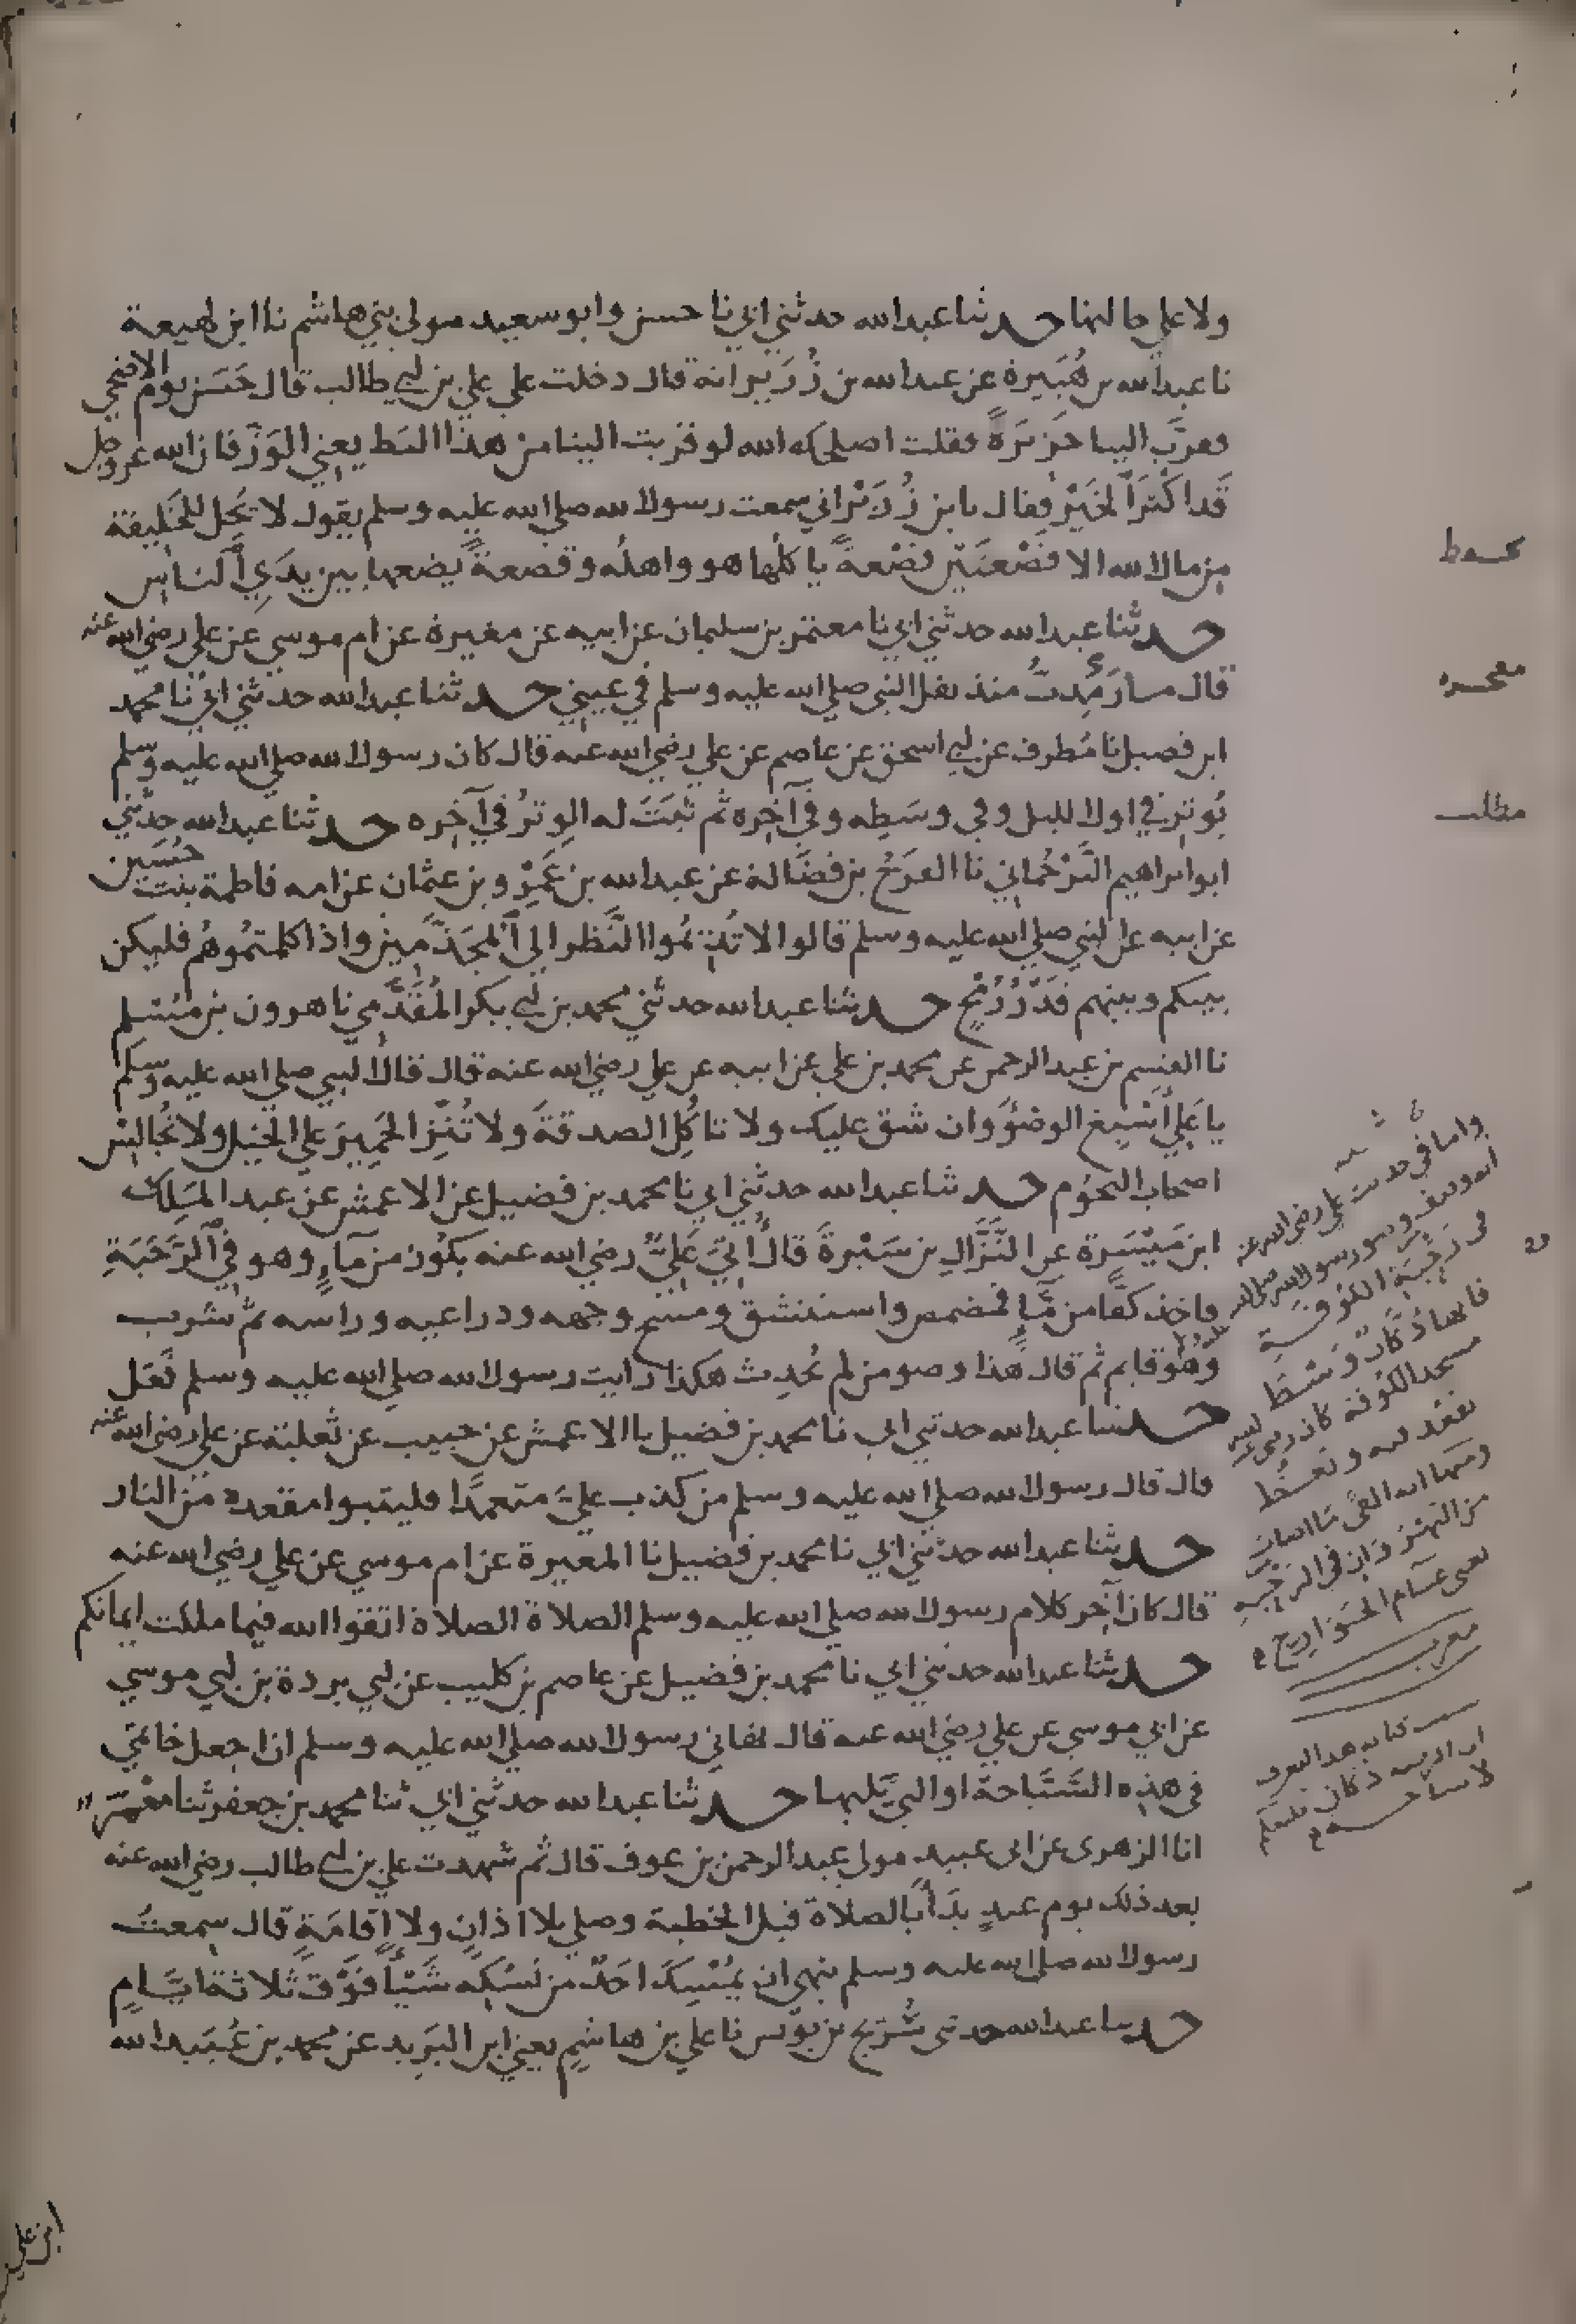 ولا علي خالتها حدثنا عبدالله حدثني ابي نا حسن وابو سعيد مولى بني هاشم نا ابن لهيعة
نا عبدالله بن هُبَيرة عن عبدالله بن زُرَيْر انه قال دخلت علي علي بن ابي طالب قال حَسَن يوم الاضحي
فقرَّب الينا خَزِيرَةً فقلت اصلحك الله لو قربت الينا من هذا البط يعني الوَزَّ فان الله عز وجل
قَد اكْثَرَ الخَيْرَ فقال يا بن زُرَيْر اني سمعت رسول الله صلي الله عليه وسلم يقول لا يَحُل للخَليفة
من مال الله الا قَصْعَتَيْن قَصْعَةً ياكلُها هو واهلُه وقصعةً يضعها بين يدَيِ الناس
حدثنا عبدالله حدثني ابي نا معتمر بن سليمان عن ابيه عن مغيرة عن ام موسي عن علي رضي الله عنه
قال ما رَمِدتُّ منذ تفل النبي صلي الله عليه وسلم في عيني حدثنا عبدالله حدثني ابي نا محمد
ابن فضيل نا مُطرف عن ابي اسحق عن عاصم عن علي رضي الله عنه قال كان رسول الله صلي الله عليه وسلم
يُوتِر في اول الليل وفي وسَطِه وفي آخِره ثم ثَبَتَ له الوِترُ في آخِره حدثنا عبدالله حدثني
ابو ابراهيم التَّرْجُماني نا الفَرَجُ بن فَضَالة عن عبدالله بن عَمْرو بن عثمان عن امه فاطمة بنت حُسَين
عن ابيه عن النبي صلي الله عليه وسلم قال لا تُدِيمُوا النَّظر الي المجَذَّمين واذا كلمتمُوهُم فليكن
بينكم وبينهم قَدْرُ رُمْحٍ حدثنا عبدالله حدثني محمد بن ابي بكر المُقَدَّمي نا هرون بن مُسْلم
نا القسم بن عبد الرحمن عن محمد بن علي عن ابيه عن علي رضي الله عنه قال قال لي النبي صلي الله عليه وسلم
يا عَلِي أَسْبِغِ الوضُوَ وان شق عليك ولا تاكُلِ الصدقَةَ ولا تُنْزِ الحَمِيرَ علي الخَيْل ولا تُجالِسْ
اصحاب النجُوم حدثنا عبدالله حدثني ابي نا محمد بن فضيل عن الاعمش عن عبد المَلِك
ابن مَيْسَرة عن النَّزَّالِ بن سَبْرَةَ قال أُتِيَ عَلِيٌّ رضي الله عنه بكُوز من مآءٍ وهو في الرَّحَبَةِ
فاخذ كفًّا من مَّا فمضمض واستنشق ومسح وجهه وذراعيه وراسه ثم شرب
وهُو قايم ثم قال هذا وضو من لم يُحدِث هكذا رايت رسول الله صلي الله عليه وسلم فَعَل
حدثنا عبدالله حدثني ابي نا محمد بن فضيل نا الاعمش عن حبيب عن ثعلبة عن علي رضي الله عنه
قال قال رسول الله صلي الله عليه وسلم من كذب عليَّ متعمدًا فليتبوا مقعده من النار
حدثنا عبدالله حدثني ابي نا محمد بن فضيل نا المغيرة عن ام موسي عن علي رضي الله عنه
قال كان آخِر كلام رسول الله صلي الله عليه وسلم الصلاة الصلاة اتقوا الله فيما ملكت ايمانكم
حدثنا عبدالله حدثني ابي نا محمد بن فضيل عن عاصم بن كليب عن ابي بردة بن ابي موسي
عن ابي موسي عن علي رضي الله عنه قال نهاني رسول الله صلي الله عليه وسلم ان اجعل خاتمي
في هذه السَّبَّاحة او التي تليها حدثنا عبدالله حدثني ابي ثنا محمد بن جعفر ثنا مَعْمَر
انا الزهري عن ابي عبيد مولى عبد الرحمن بن عوف قال ثم شهدت علي بن ابي طالب رضي الله عنه
بعد ذلك يوم عيدٍ بدَأَ بالصلاة قبل الخطبة وصلي بلا اذانٍ ولا إقامَةٍ قال سمعتُ
رسول الله صلي الله عليه وسلم ينهي ان يُمْسِكَ احَدٌ من نُسُكِه شَيْأً فَوْقَ ثَلاثة ايَّامٍ
حدثنا عبدالله حدثني سُرَيج بن يونس نا علي بن هاشم يعني ابن البَرِيد عن محمد بن عُبَيدالله
مطلب
واما في حديث علي رضي الله عنه
في رَحَبَة الكوفة
فانها دُكّان وَسْطَ
مسجد الكوفة كان رضي الله عنه
يقعد فيه ويعظ
من النهروان في الرَحَبة
مغرب
ابن علي